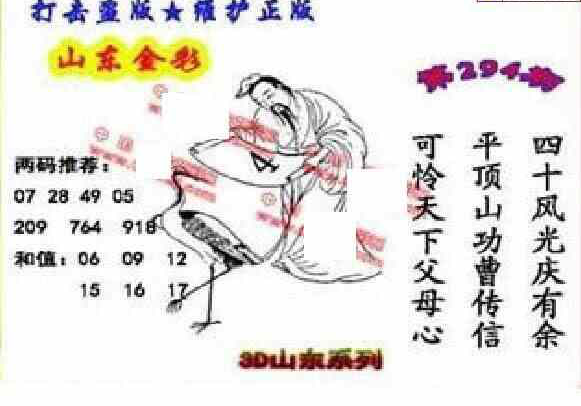 打击盗版★维护正版
山东金彩
第294期
两码推荐：
07 28 49 05
209 764 918
和值：06 09 12
15 16 17
四十风光庆有余
平顶山功曹传信
可怜天下父母心
3D山东系列